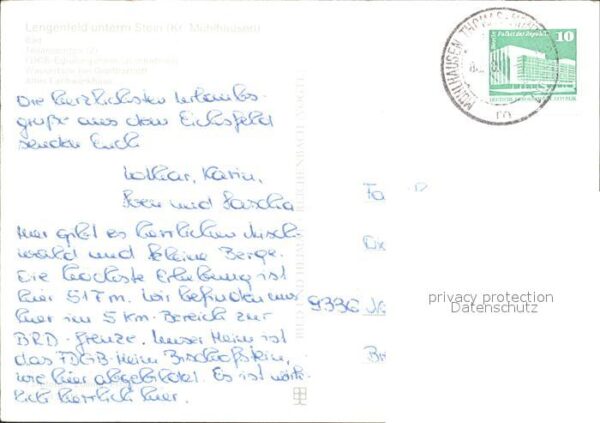 Lengenfeld unterm Stein (Kr. Mühlhausen)
Bad
Die herzlichsten Urlaubs-
grüße aus dem Eichsfeld
senden Euch
Lothar, Karin,
Sven und Sascha
Hier gibt es herrlichen Misch-
wald und kleine Berge.
Die höchste Erhebung ist
hier 517 m. Wir befinden uns
hier im 5 km-Bereich zur
BRD-Grenze. Unser Heim ist
das FDGB-Heim Bischofstein,
wie hier abgebildet. Es ist wirk-
lich herrlich hier.
BILD UND HEIMAT REICHENBACH (VOGTL)
MÜHLHAUSEN THOMAS-MÜNTZER
Berlin Palast der Republik
10
DEUTSCHE DEMOKRATISCHE REPUBLIK
Fa
9336
privacy protection
Datenschutz